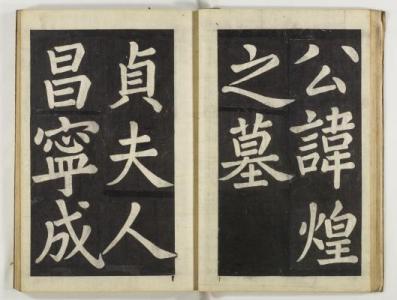 公諱煌
之墓
貞夫人
昌寧成